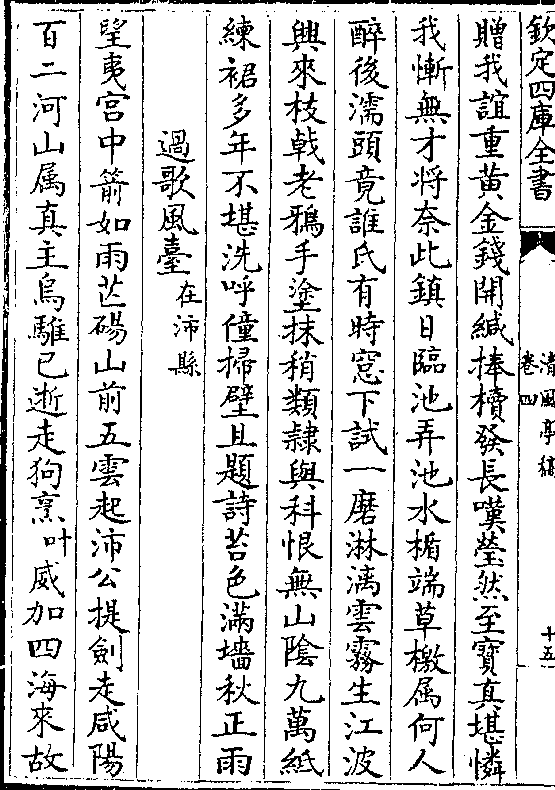 欽定四庫全書
清風亭稿
卷四
十五
贈我誼重黄金錢開緘捧櫝發長嘆瑩然至寳真堪憐
我慚無才将奈此鎮日臨池弄池水楯端草檄属何人
醉後濡頭竟誰氏有時窓下試一磨淋漓雲霧生江波
興來枝㦸老鴉手塗抹稍類隷與科恨無山陰九萬紙
練裙多年不堪洗呼僮掃壁且題詩苔色滿墻秋正雨
過歌風臺在沛縣
望夷宫中箭如雨芒碭山前五雲起沛公提劍走咸陽
百二河山属真主烏騅已逝走狗烹叶威加四海來故